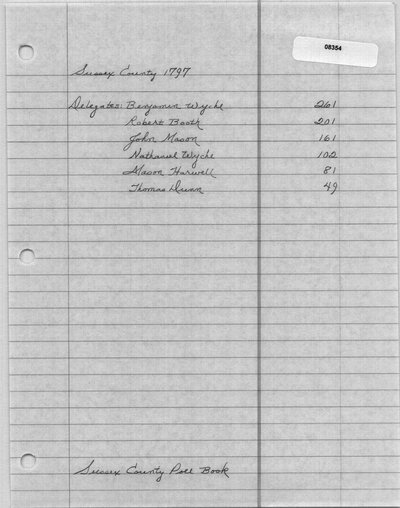 08354
Sussex County 1797
Delegates: Benjamin Wyche 261
Robert Booth 201
John Mason 161
Nathaniel Wyche 102
Mason Harwell 81
Thomas Dunn 49
Sussex County Poll Book